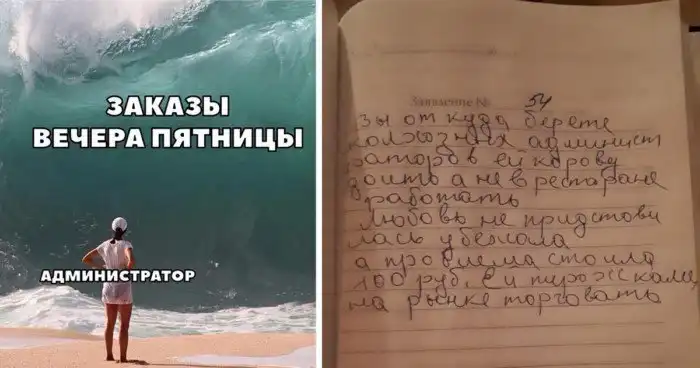 ЗАКАЗЫ
ВЕЧЕРА ПЯТНИЦЫ
АДМИНИСТРАТОР
Заявление № 54
вы от куда берете
колхозных админист
раторов ей корову
доить а не в рестаране
работать
любовь не придстови
лась убежала
а проблема стоила
100 руб. ей пирожками
на рынке торговать